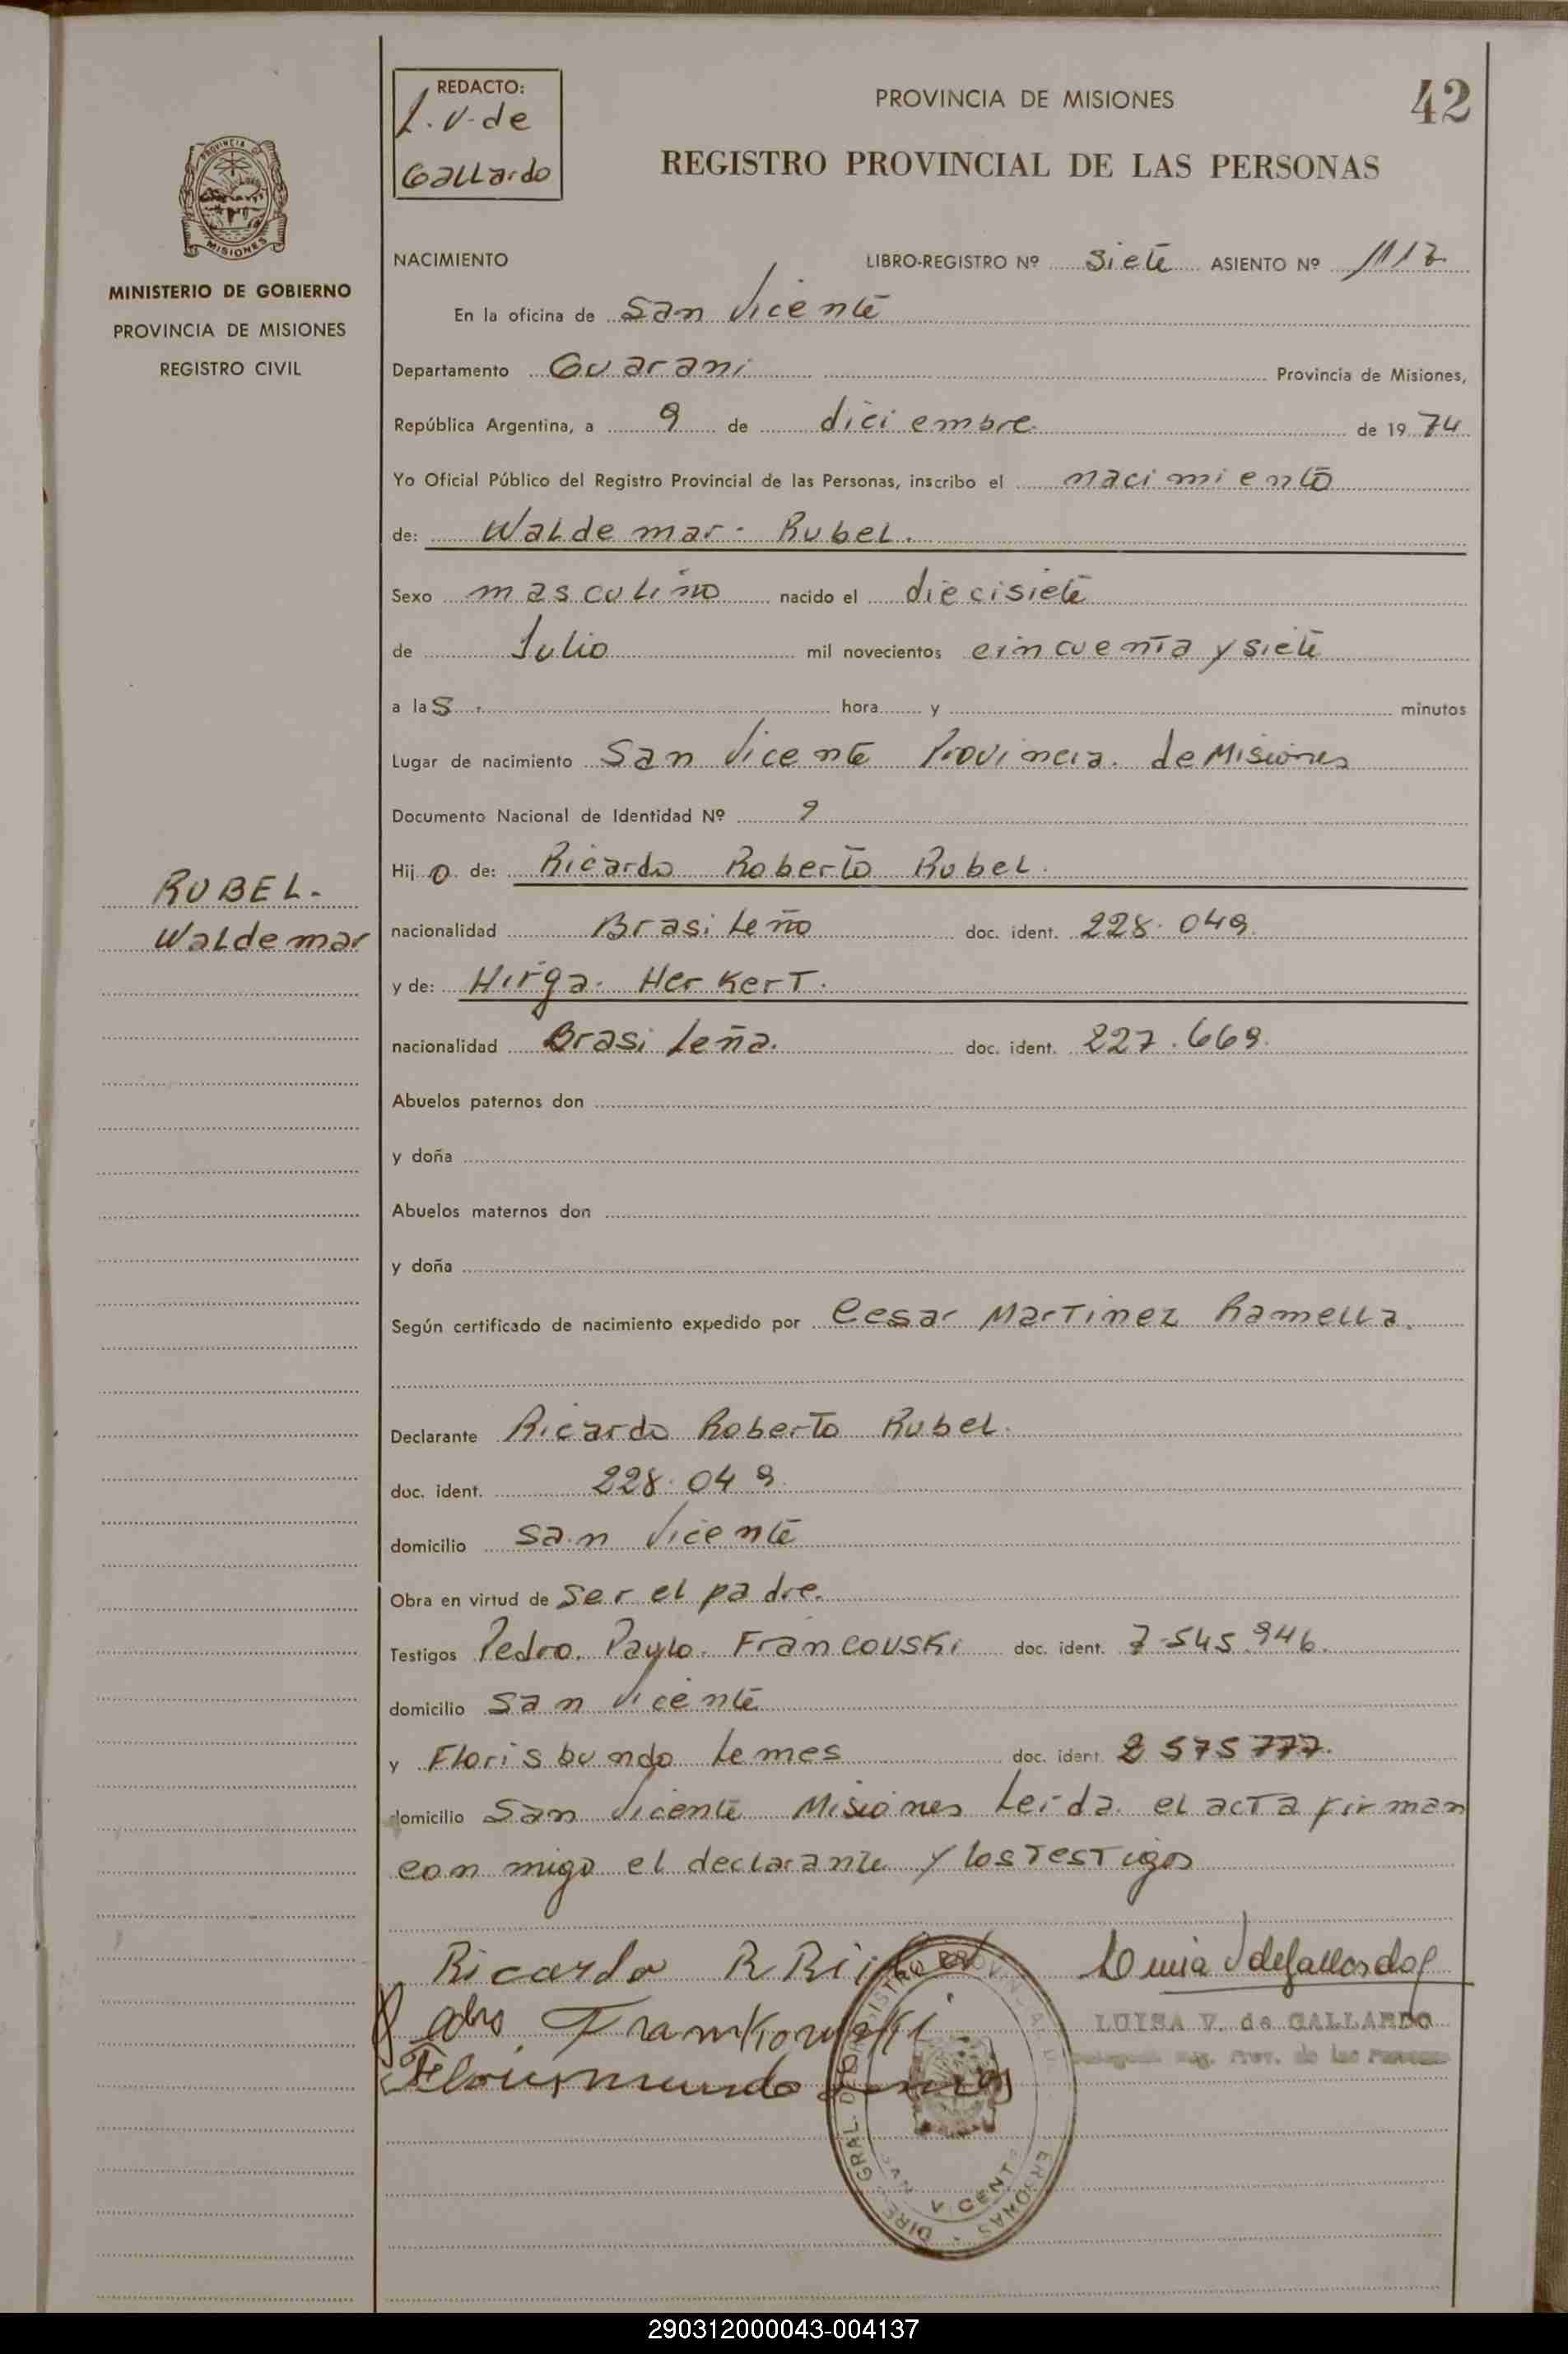 REDACTO:
L. V. de
Gallardo
PROVINCIA DE MISIONES
42
REGISTRO PROVINCIAL DE LAS PERSONAS
PROVINCIA
MISIONES
MINISTERIO DE GOBIERNO
PROVINCIA DE MISIONES
REGISTRO CIVIL
NACIMIENTO LIBRO-REGISTRO Nº siete ASIENTO Nº 1117
En la oficina de San Vicente
Departamento Guarani Provincia de Misiones,
República Argentina, a 9 de diciembre de 1974
Yo Oficial Público del Registro Provincial de las Personas, inscribo el nacimiento
de: Waldemar Rubel.
Sexo masculino nacido el diecisiete
de Julio mil novecientos cincuenta y siete
a las hora y minutos
Lugar de nacimiento San Vicente Provincia de Misiones
Documento Nacional de Identidad Nº 9
Hijo de: Ricardo Roberto Rubel.
RUBEL.
Waldemar
nacionalidad Brasileño doc. ident. 228.049
y de: Hirga Herkert.
nacionalidad Brasileña. doc. ident. 227.669.
Abuelos paternos don
y doña
Abuelos maternos don
y doña
Según certificado de nacimiento expedido por Cesar Martinez Ramella.
Declarante Ricardo Roberto Rubel.
doc. ident. 228.049
domicilio San Vicente
Obra en virtud de ser el padre.
Testigos Pedro Paulo Francouski doc. ident. 7.545.946.
domicilio San Vicente
y Florisbundo Lemes doc. ident. 2575777.
domicilio San Vicente Misiones Leida el acta firman
con migo el declarante y los testigos
Ricardo R
Luisa V de Gallardo
LUISA V. de GALLARDO
Frankowski
VICENTE
290312000043-004137